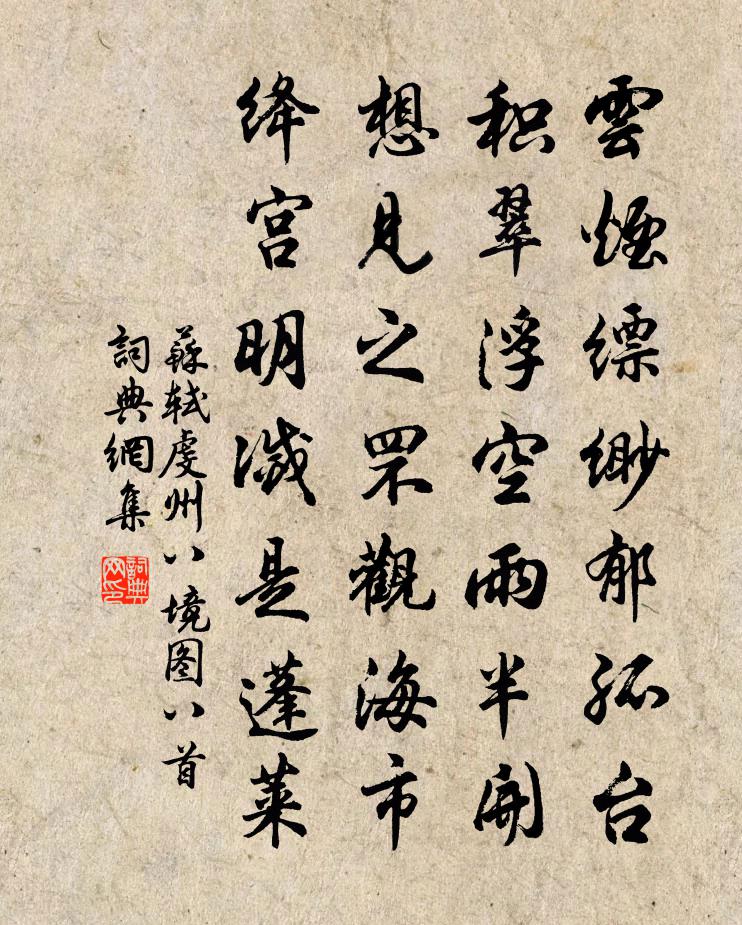 雲煙縹緲郁孤台
积翠浮空雨半開
想見之罘觀海市
絳宫明滅是蓬萊
蘇軾虔州八境图八首
詞典網集
詞典网印